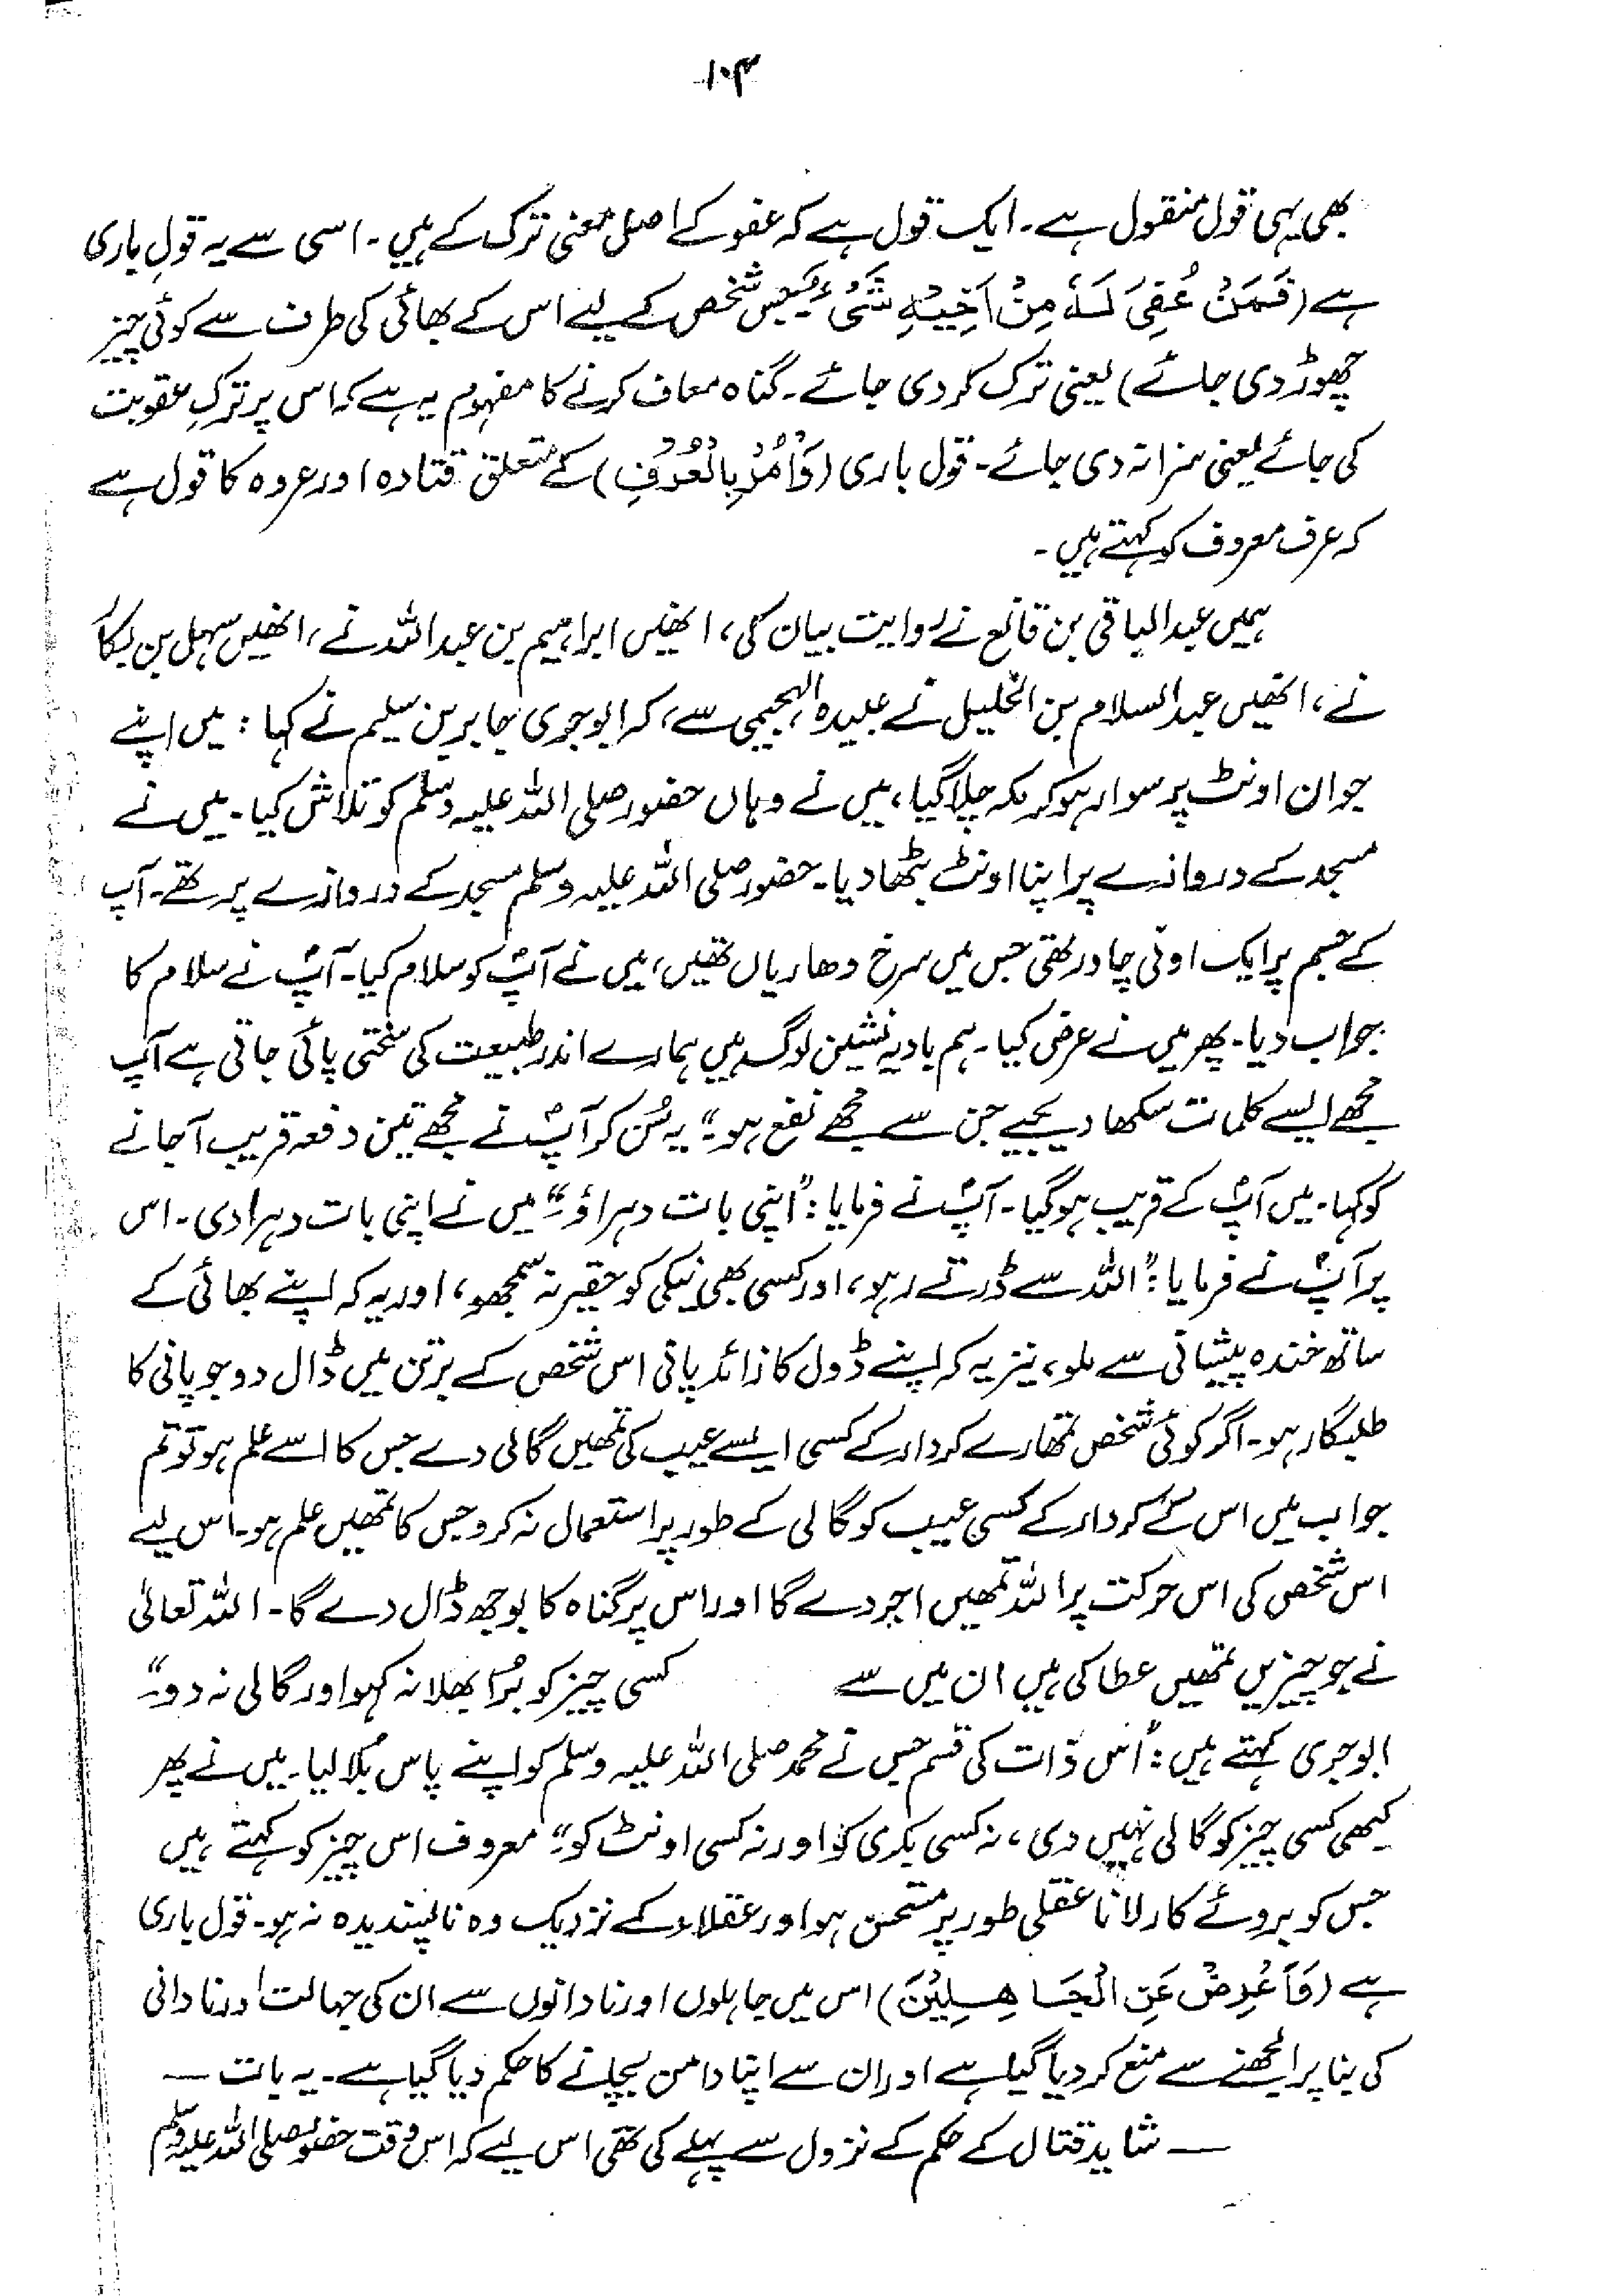 ۱۰۴
بھی یہی قول منقول ہے۔ ایک قول ہے کہ عفو کے اصل معنی ترک کے ہیں۔ اسی سے یہ قولِ باری
ہے (فَمَنْ عُفِیَ لَہٗ مِنْ اَخِیْہِ شَیْءٌ جس شخص کے لیے اس کے بھائی کی طرف سے کوئی چیز
چھوڑ دی جائے) یعنی ترک کر دی جائے۔ گناہ معاف کرنے کا مفہوم یہ ہے کہ اس پر ترکِ عقوبت
کی جائے یعنی سزا نہ دی جائے۔ قول باری (وَاْمُرْ بِالْعُرْفِ) کے متعلق قتادہ اور عروہ کا قول ہے
کہ عرف معروف کو کہتے ہیں۔
ہمیں عبدالباقی بن قانع نے روایت بیان کی، انھیں ابراہیم بن عبداللہ نے، انھیں سہل بن بکار
نے، انھیں عبدالسلام بن الخلیل نے عبیدہ الہجیمی سے، کہ ابوجری جابر بن سلیم نے کہا: میں اپنے
جوان اونٹ پر سوار ہو کر مکہ چلا گیا، میں نے وہاں حضور صلی اللہ علیہ وسلم کو تلاش کیا۔ میں نے
مسجد کے دروازے پر اپنا اونٹ بٹھا دیا۔ حضور صلی اللہ علیہ وسلم مسجد کے دروازے پر تھے۔ آپ
کے جسم پر ایک اونی چادر تھی جس میں سرخ دھاریاں تھیں، میں نے آپؐ کو سلام کیا۔ آپؐ نے سلام کا
جواب دیا۔ پھر میں نے عرض کیا۔ ہم بادیہ نشین لوگ ہیں ہمارے اندر طبیعت کی سختی پائی جاتی ہے آپ
مجھے ایسے کلمات سکھا دیجیے جن سے مجھے نفع ہو۔“ یہ سُن کر آپؐ نے مجھے تین دفعہ قریب آ جانے
کو کہا۔ میں آپؐ کے قریب ہو گیا۔ آپؐ نے فرمایا: ”اپنی بات دہراؤ۔“ میں نے اپنی بات دہرا دی۔ اس
پر آپؐ نے فرمایا: ”اللہ سے ڈرتے رہو، اور کسی بھی نیکی کو حقیر نہ سمجھو، اور یہ کہ اپنے بھائی کے
ساتھ خندہ پیشانی سے ملو، نیز یہ کہ اپنے ڈول کا زائد پانی اس شخص کے برتن میں ڈال دو جو پانی کا
طلبگار ہو۔ اگر کوئی شخص تمھارے کردار کے کسی ایسے عیب کی تمھیں گالی دے جس کا اسے علم ہو تو تم
جواب میں اس کے کردار کے کسی عیب کو گالی کے طور پر استعمال نہ کرو جس کا تمھیں علم ہو۔ اس لیے
اس شخص کی اس حرکت پر اللہ تمھیں اجر دے گا اور اس پر گناہ کا بوجھ ڈال دے گا۔ اللہ تعالیٰ
نے جو چیزیں تمھیں عطا کی ہیں ان میں سے کسی چیز کو بُرا بھلا نہ کہو اور گالی نہ دو۔“
ابوجری کہتے ہیں: ”اُس ذات کی قسم جس نے محمد صلی اللہ علیہ وسلم کو اپنے پاس بُلا لیا۔ میں نے پھر
کبھی کسی چیز کو گالی نہیں دی، نہ کسی بکری کو اور نہ کسی اونٹ کو۔“ معروف اس چیز کو کہتے ہیں
جس کو بروئے کار لانا عقلی طور پر مستحسن ہو اور عقلاء کے نزدیک وہ ناپسندیدہ نہ ہو۔ قول باری
ہے (وَاَعْرِضْ عَنِ الْجَاھِلِیْنَ) اس میں جاہلوں اور نادانوں سے ان کی جہالت اور نادانی
کی بنا پر الجھنے سے منع کر دیا گیا ہے اور ان سے اپنا دامن بچانے کا حکم دیا گیا ہے۔ یہ بات —
— شاید قتال کے حکم کے نزول سے پہلے کی تھی اس لیے کہ اس وقت حضور صلی اللہ علیہ وسلم